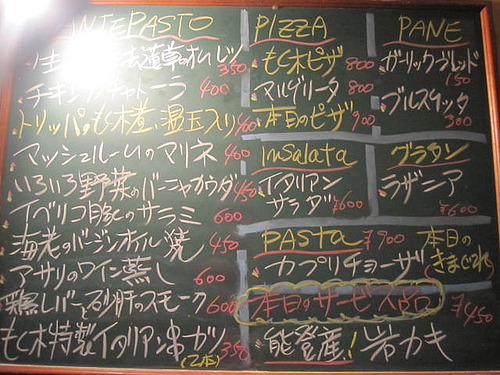 ANTEPASTO
生 法蓮草のオムレツ 350
チキンカチャトーラ 400
トリッパのもく木煮、温玉入り 400
マッシュルームのマリネ 400
いろいろ野菜のバーニャカウダ 450
イベリコ豚のサラミ 600
海老のバージンオイル焼 450
アサリのワイン蒸し 600
鶏レバーと砂肝のスモーク 600
もく木特製イタリアン串カツ (2本) 350
PIZZA
もく木ピザ 800
マルゲリータ 800
本日のピザ 900
insalata
イタリアン
サラダ ¥600
PANE
ガーリックブレッド
150
ブルスケッタ
300
グラタン
ラザニア
¥600
PASTA ¥900 本日の
カプリチョーザ きまぐれ
本日のサービス品 ¥450
能登産！岩カキ